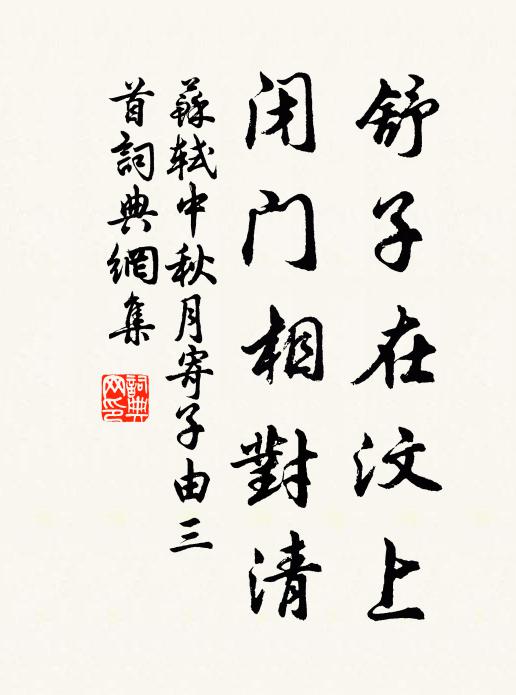 舒子在汶上
闭门相對清
蘇軾中秋月寄子由三
首詞典網集
詞典
网印